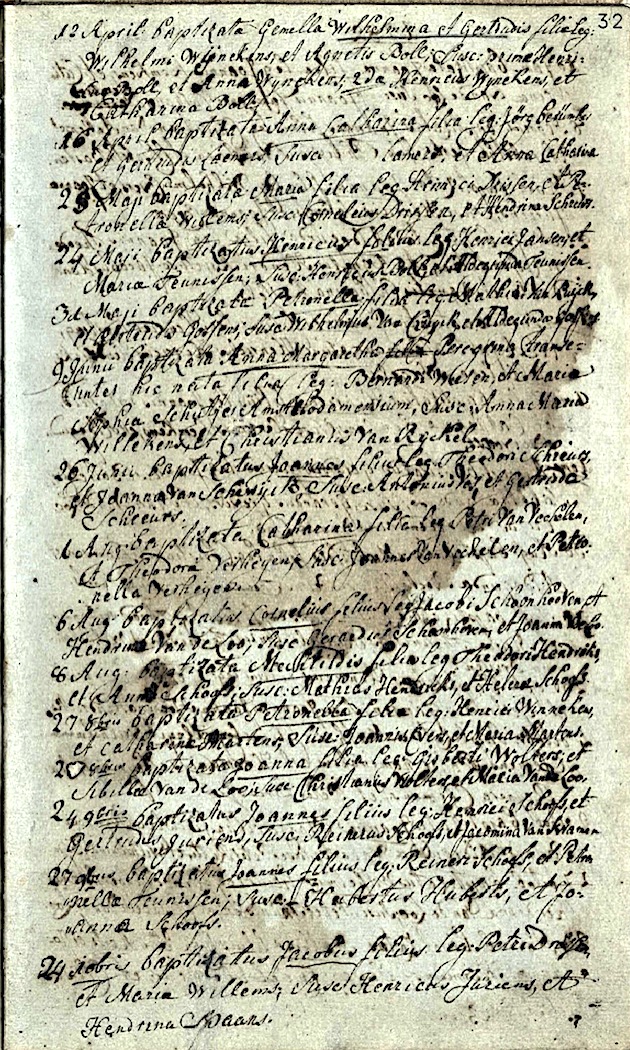 32
12 April: baptizata Gemella Wilhelmina et Gertrudis filiæ leg:
Wilhelmi Wijnekens, et Agnetis Doll; Susc: prima Henri-
Doll, et Anna Wijnekens, 2da Henricus Wijnekens, et
Catharina Doll.
16 April: baptizata Anna Catharina filia leg: Jörg
et Gertrudis Susc et Anna Catharina
Maji baptizata Maria filia leg: Henrici Drissen, et Pe-
tronella Willems; Susc: Cornelius Drissen, et Hendrina
24 Maji baptizatus Henricus filius leg: Henrici Jansen, et
Maria Teunissen; Susc: Henricus Doll, et Aldegundis Teunissen.
Maji baptizata Petronella filia leg: Van
et Gertrudis Gossens, Susc: Wilhelmus Van et Aldegunda
9 Junii baptizata Anna Margaretha Peregrina transe-
untes hic nata filia leg: Bernardi et Maria
Sophia Amstelodamensium, Susc: Anna Maria
Willekens, et Christianus Van Ryckel.
26 Junii baptizatus Joannes filius leg: Theodori Scheeurs,
et Joanna Van Susc: Antonius et Gertrudis
Scheeurs.
1 Aug: baptizata Catharina filia leg: Petri Van Veckelen,
et Theodora Verheijen, Susc: Joannes Van Veckelen, et Petro-
nella Verheijen.
6 Aug: baptizatus Cornelius filius leg: Jacobi Schoonhooven et
Hendrina Van de Loo, Susc: Gerardus Schoonhoven, et Joanna
8 Aug: baptizata Mechtildis filia leg: Theodori Hendrikx,
et Anna Schoofs, Susc: Mathias Hendrikx, et Helena Schoofs.
27 8bris baptizata Petronella filia leg: Henrici Winnekens,
et Catharina Martens, Susc: Joannes et Maria Martens.
8bris baptizata Joanna filia leg: Gisberti Wolters, et
Sibilla Van de Loo, Susc: Christianus Wolters, et Maria Van de Loo.
24 9bris baptizatus Joannes filius leg: Henrici Schoofs, et
Gertrudis Juriens, Susc: Reinerus Schoofs, et Jacomina Van
27 9bris baptizatus Joannes filius leg: Reineri Schoofs, et Petro
nella Teunissen, Susc: Hubertus Huberts, et Jo-
anna Schoofs.
24 Xobris baptizatus Jacobus filius leg: Petri
et Maria Willems, Susc Henricus Juriens, et
Hendrina Spaans.